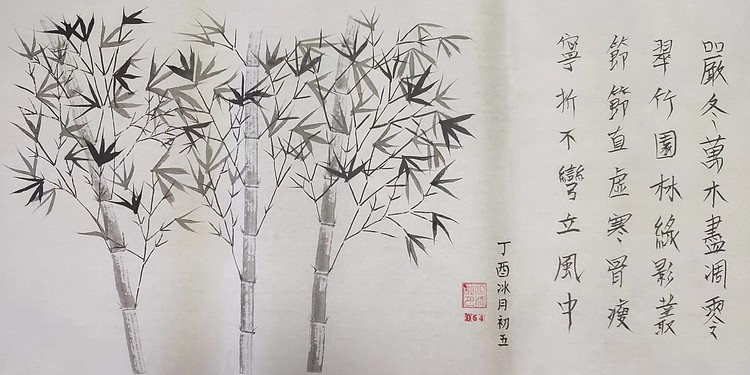 嚴冬萬木盡凋零
翠竹園林綠影叢
節節直虛寒骨瘦
寧折不彎立風中
丁酉冰月初五